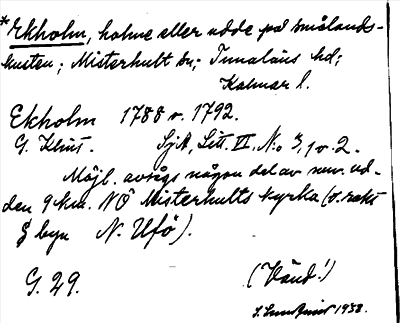 *Ekholm, holme eller udde på smålands-
kusten; Misterhult sn; Tunaläns hd;
Kalmar l.
Ekholm 1788 o. 1792.
G. Klint. SjA, Litt. VI, No 3, 1 o. 2.
Möjl. avsågs någon del av nuv. ud-
den 9 km. NÖ Misterhults kyrka (o. rakt
S byn N. Ufö).
G. 29. (Vänd!)
1938.